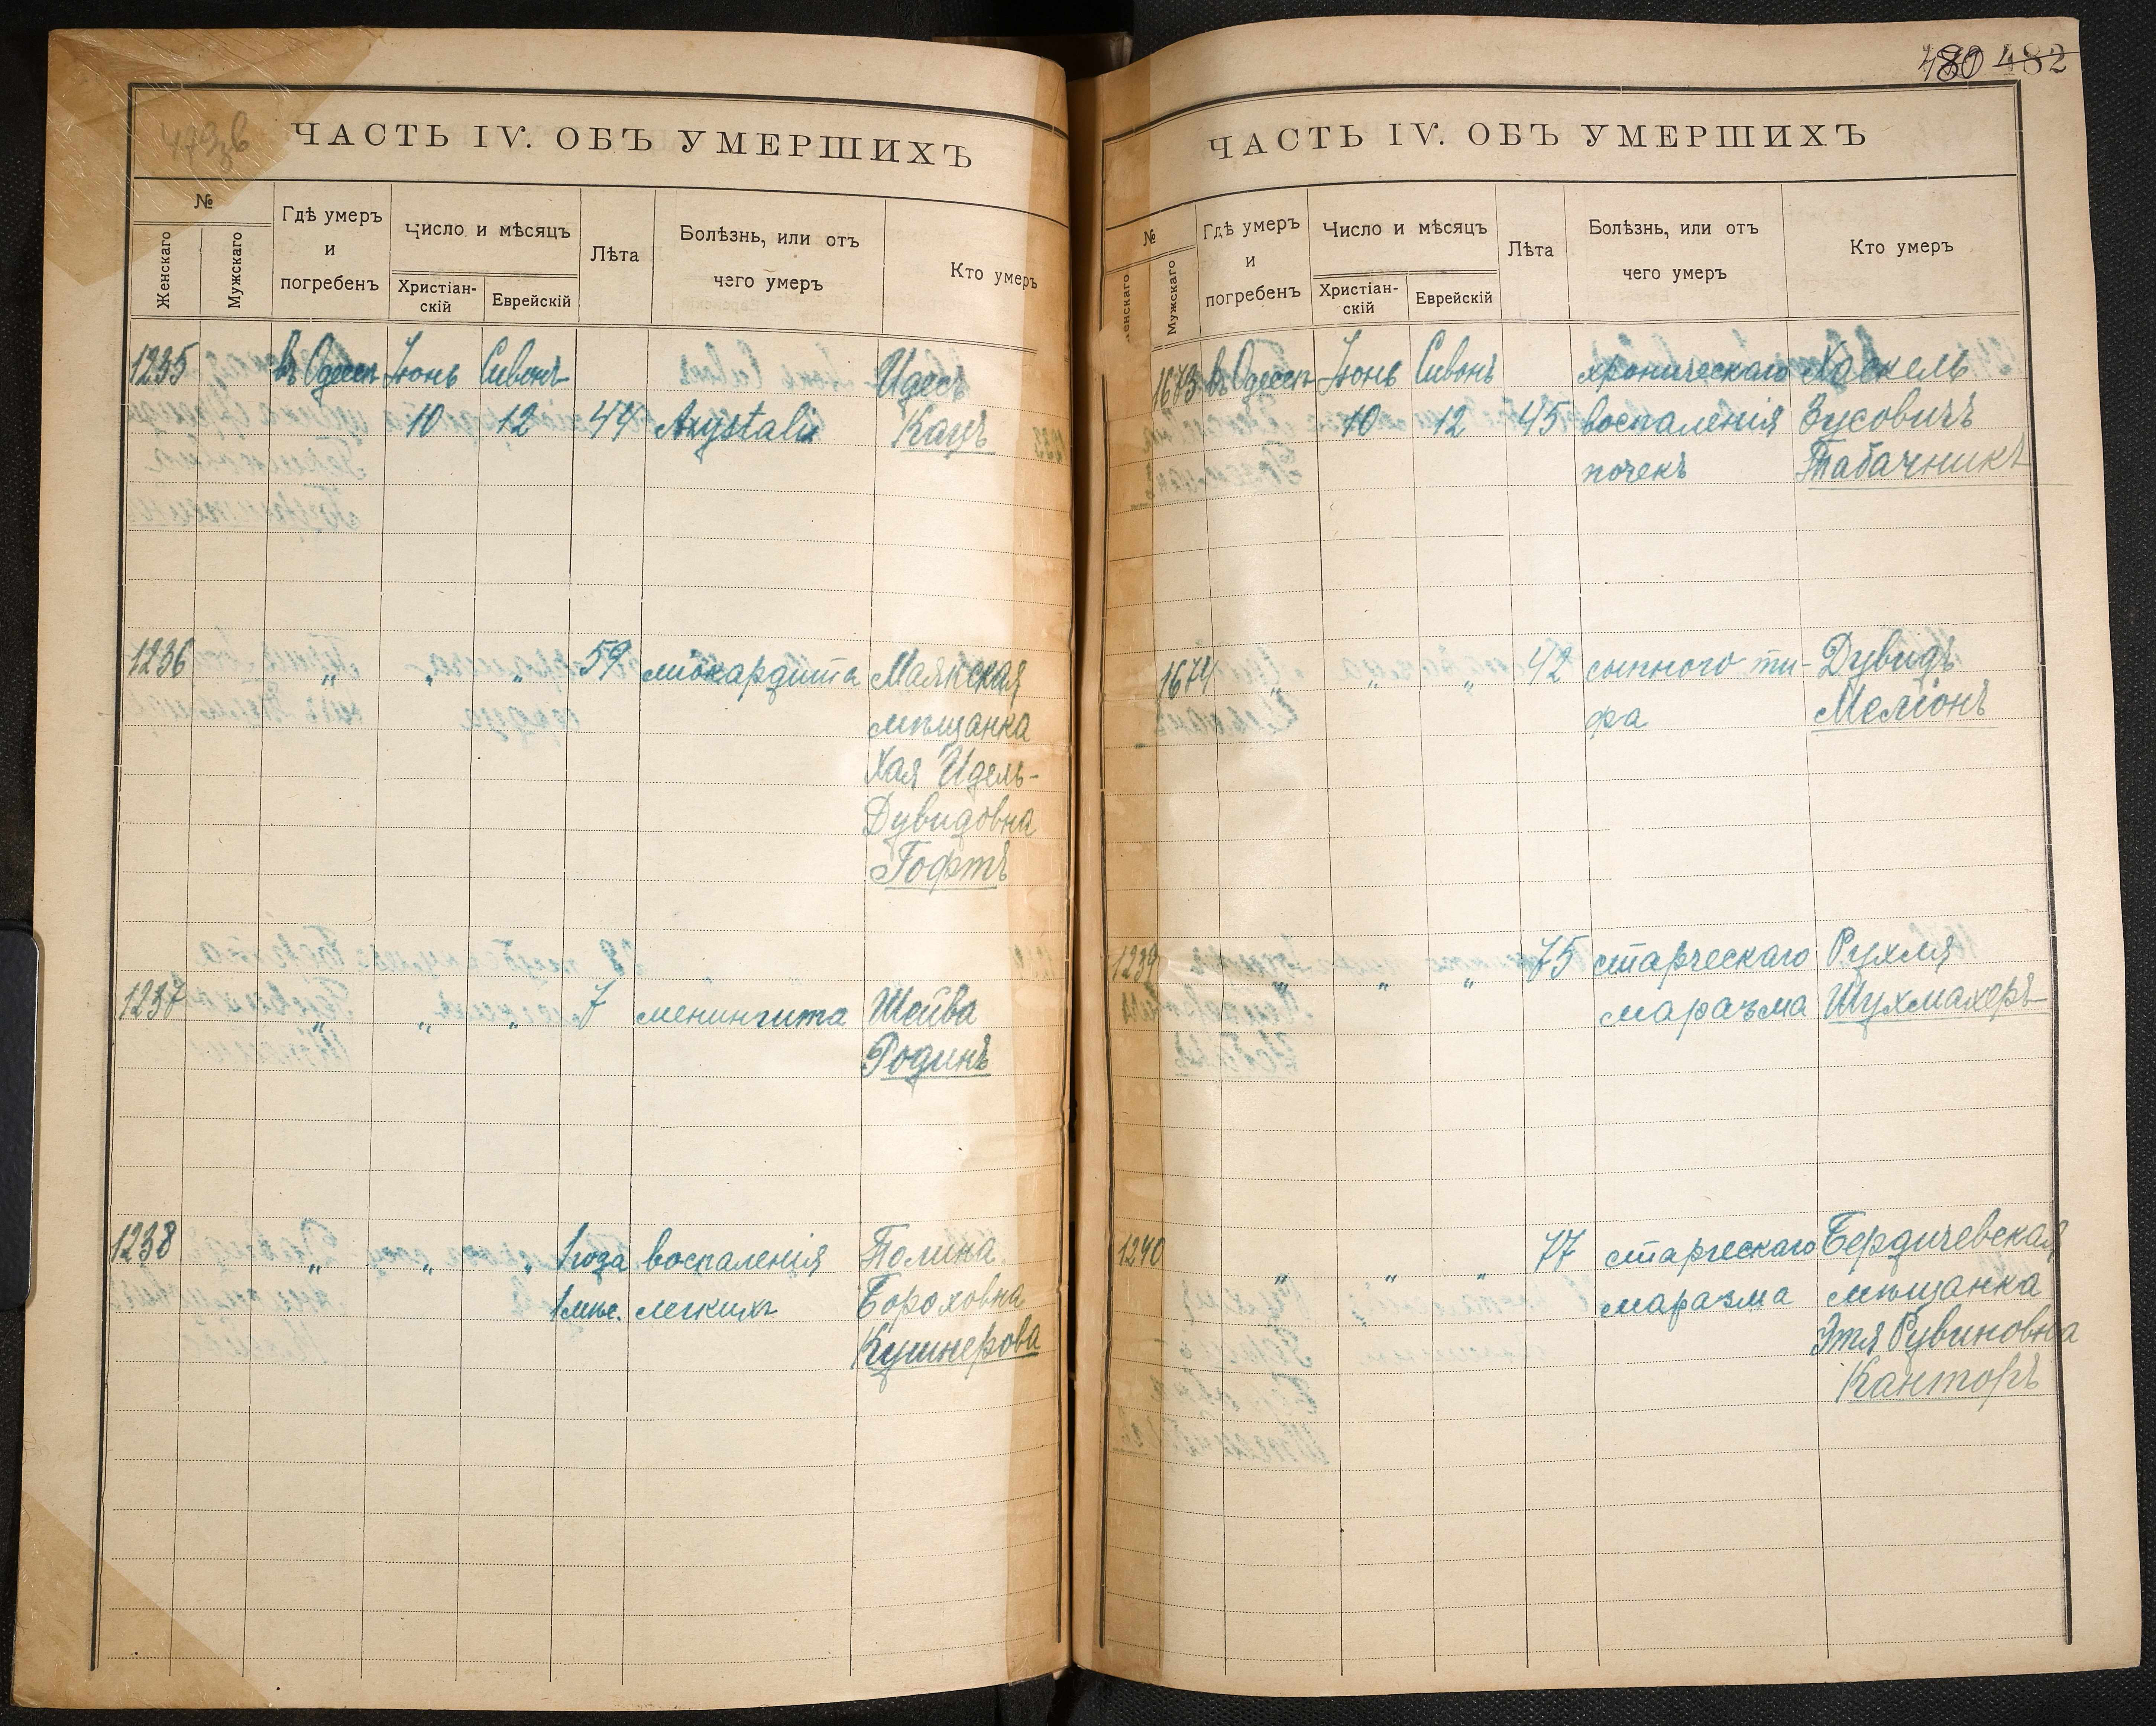 480 482
ЧАСТЬ IV. ОБЪ УМЕРШИХЪ
№
Женскаго
Мужскаго
Гдѣ умеръ
и
погребенъ
Число и мѣсяцъ
Христіан-
скій
Еврейскій
Лѣта
Болѣзнь, или отъ
чего умеръ
Кто умеръ
1235 въ Одессѣ Іюнь Сивонъ Идесъ
10 12 44 Кацъ
1236 " " " 59 міокардита Маякская
мѣщанка
Хая Идель-
Дувидовна
Гофтъ
1237 " " " 7 менингита Шейва
Родинъ
1238 " " " 1 года воспаленія Полина
1 мѣс. легкихъ Бороховна
Кушнерова
ЧАСТЬ IV. ОБЪ УМЕРШИХЪ
№
Женскаго
Мужскаго
Гдѣ умеръ
и
погребенъ
Число и мѣсяцъ
Христіан-
скій
Еврейскій
Лѣта
Болѣзнь, или отъ
чего умеръ
Кто умеръ
1673 въ Одессѣ Іюнь Сивонъ хроническаго Хаскель
10 12 45 воспаленія Зусовичъ
почекъ Табачникъ
1674 " " " 42 сыпного ти- Дувидъ
фа Меліонъ
1239 " " " 75 старческаго Рухля
маразма Шухмахеръ
1240 " " " 77 старческаго Бердичевская
маразма мѣщанка
Этя Рувиновна
Канторъ